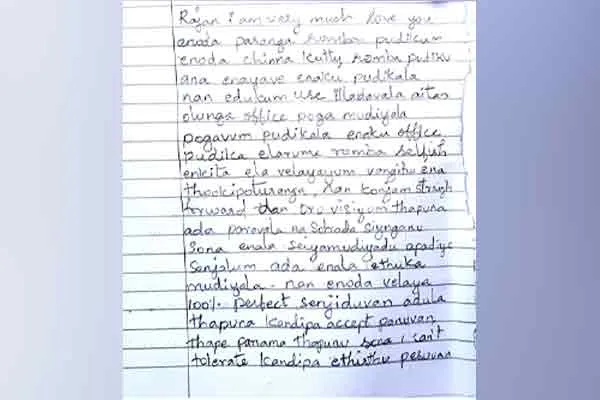 Rajan i am very much love you
enoda paranga romba pudikum
enoda chinna kutty romba pudiku
ana enayave enaku pudikala
nan edukum use illadavala aitan
olunga office poga mudiyala
pogavum pudikala enaku office
pudilca elarume romba selfish
enkita ela velayayum vangitu ena
thookipoturanga, Nan konjam straigh
forward dan oro visiyom thapuna
ada paravala na Sonada siyunganu
Sona enala seiyamudiyadu apadiye
Senjalum ada enala ethuka
mudiyala - nan enoda velaya
100% perfect senjiduvan adula
thapuna kandipa accept panuvan
thape panama thapunu sona i can't
tolerate kandipa ethirthu pesuvan